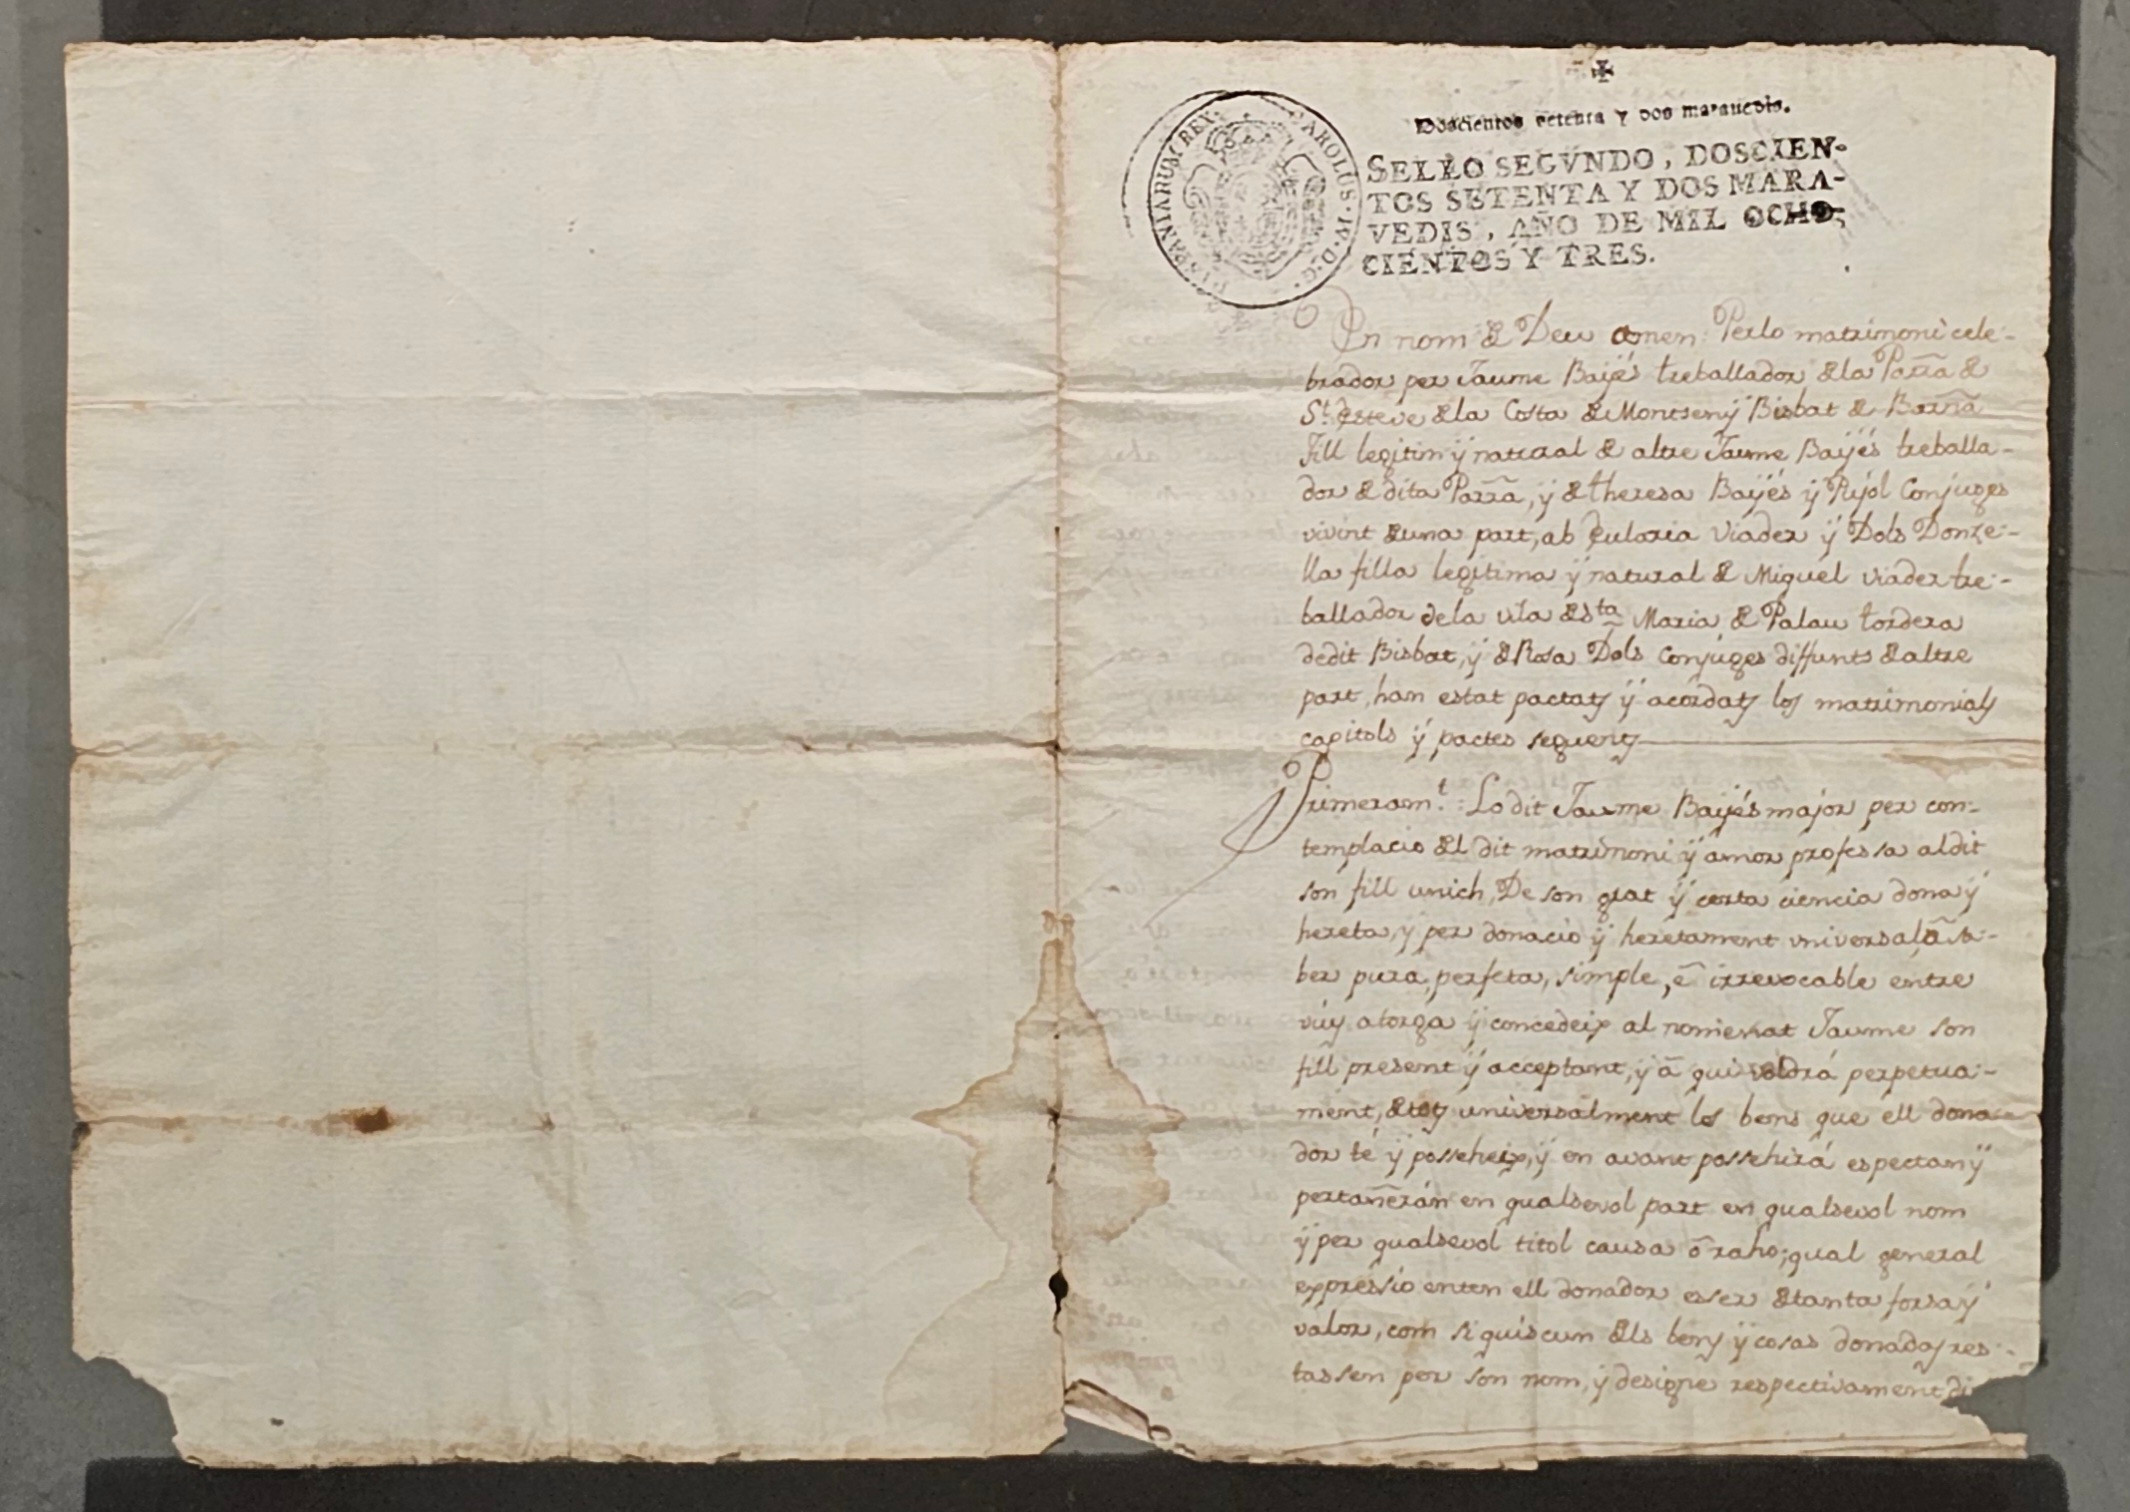 Doscientos setenta y dos maravedis.
CAROLUS · IV · D · G · HISPANIARUM REX ·
SELLO SEGVNDO, DOSCIEN-
TOS SETENTA Y DOS MARA-
VEDIS, AÑO DE MIL OCHO-
CIENTOS Y TRES.
En nom de Deu Amen: Perlo matrimoni cele-
brador per Jaume Baÿés treballador, dela Parrã de
St. Esteve dela Costa de Montsenÿ Bisbat de Barnã
fill legitim ÿ natural de altre Jaume Baÿés treballa-
dor de dita Parrã, ÿ de theresa Baÿés ÿ Pujol Conjuges
vivint de una part, ab Eularia Viader ÿ Dols Donze-
lla filla legitima ÿ natural de Miguel Viader tre-
ballador dela vila de Sta Maria de Palau tordera
dedit Bisbat, ÿ de Rosa Dols Conjuges diffunts de altre
part, han estat pactats ÿ acordats los matrimonials
capitols ÿ pactes seguents
Primeramt.: Lo dit Jaume Baÿés major per con-
templacio del dit matrimoni ÿ amor professa aldit
son fill unich, De son grat ÿ certa ciencia dona ÿ
hereta, ÿ per donació ÿ heretament vniversal, ã sa-
ber pura, perfeta, simple, ẽ irrevocable entre
viús atorga ÿ concedeix al nomenat Jaume son
fill present ÿ acceptant, ÿ ã qui voldrá perpetua-
ment, de tots universalment los bens que ell dona-
dor té ÿ posseheix, ÿ en avant possehirá espectan ÿ
pertañerán en qualsevol part en qualsevol nom
ÿ per qualsevol titol causa õ raho; qual general
expressio enten ell donador esser de tanta forsa ÿ
valor, com si quiscun dels bens ÿ cosas donadas res-
tassen per son nom, ÿ designe respectivament